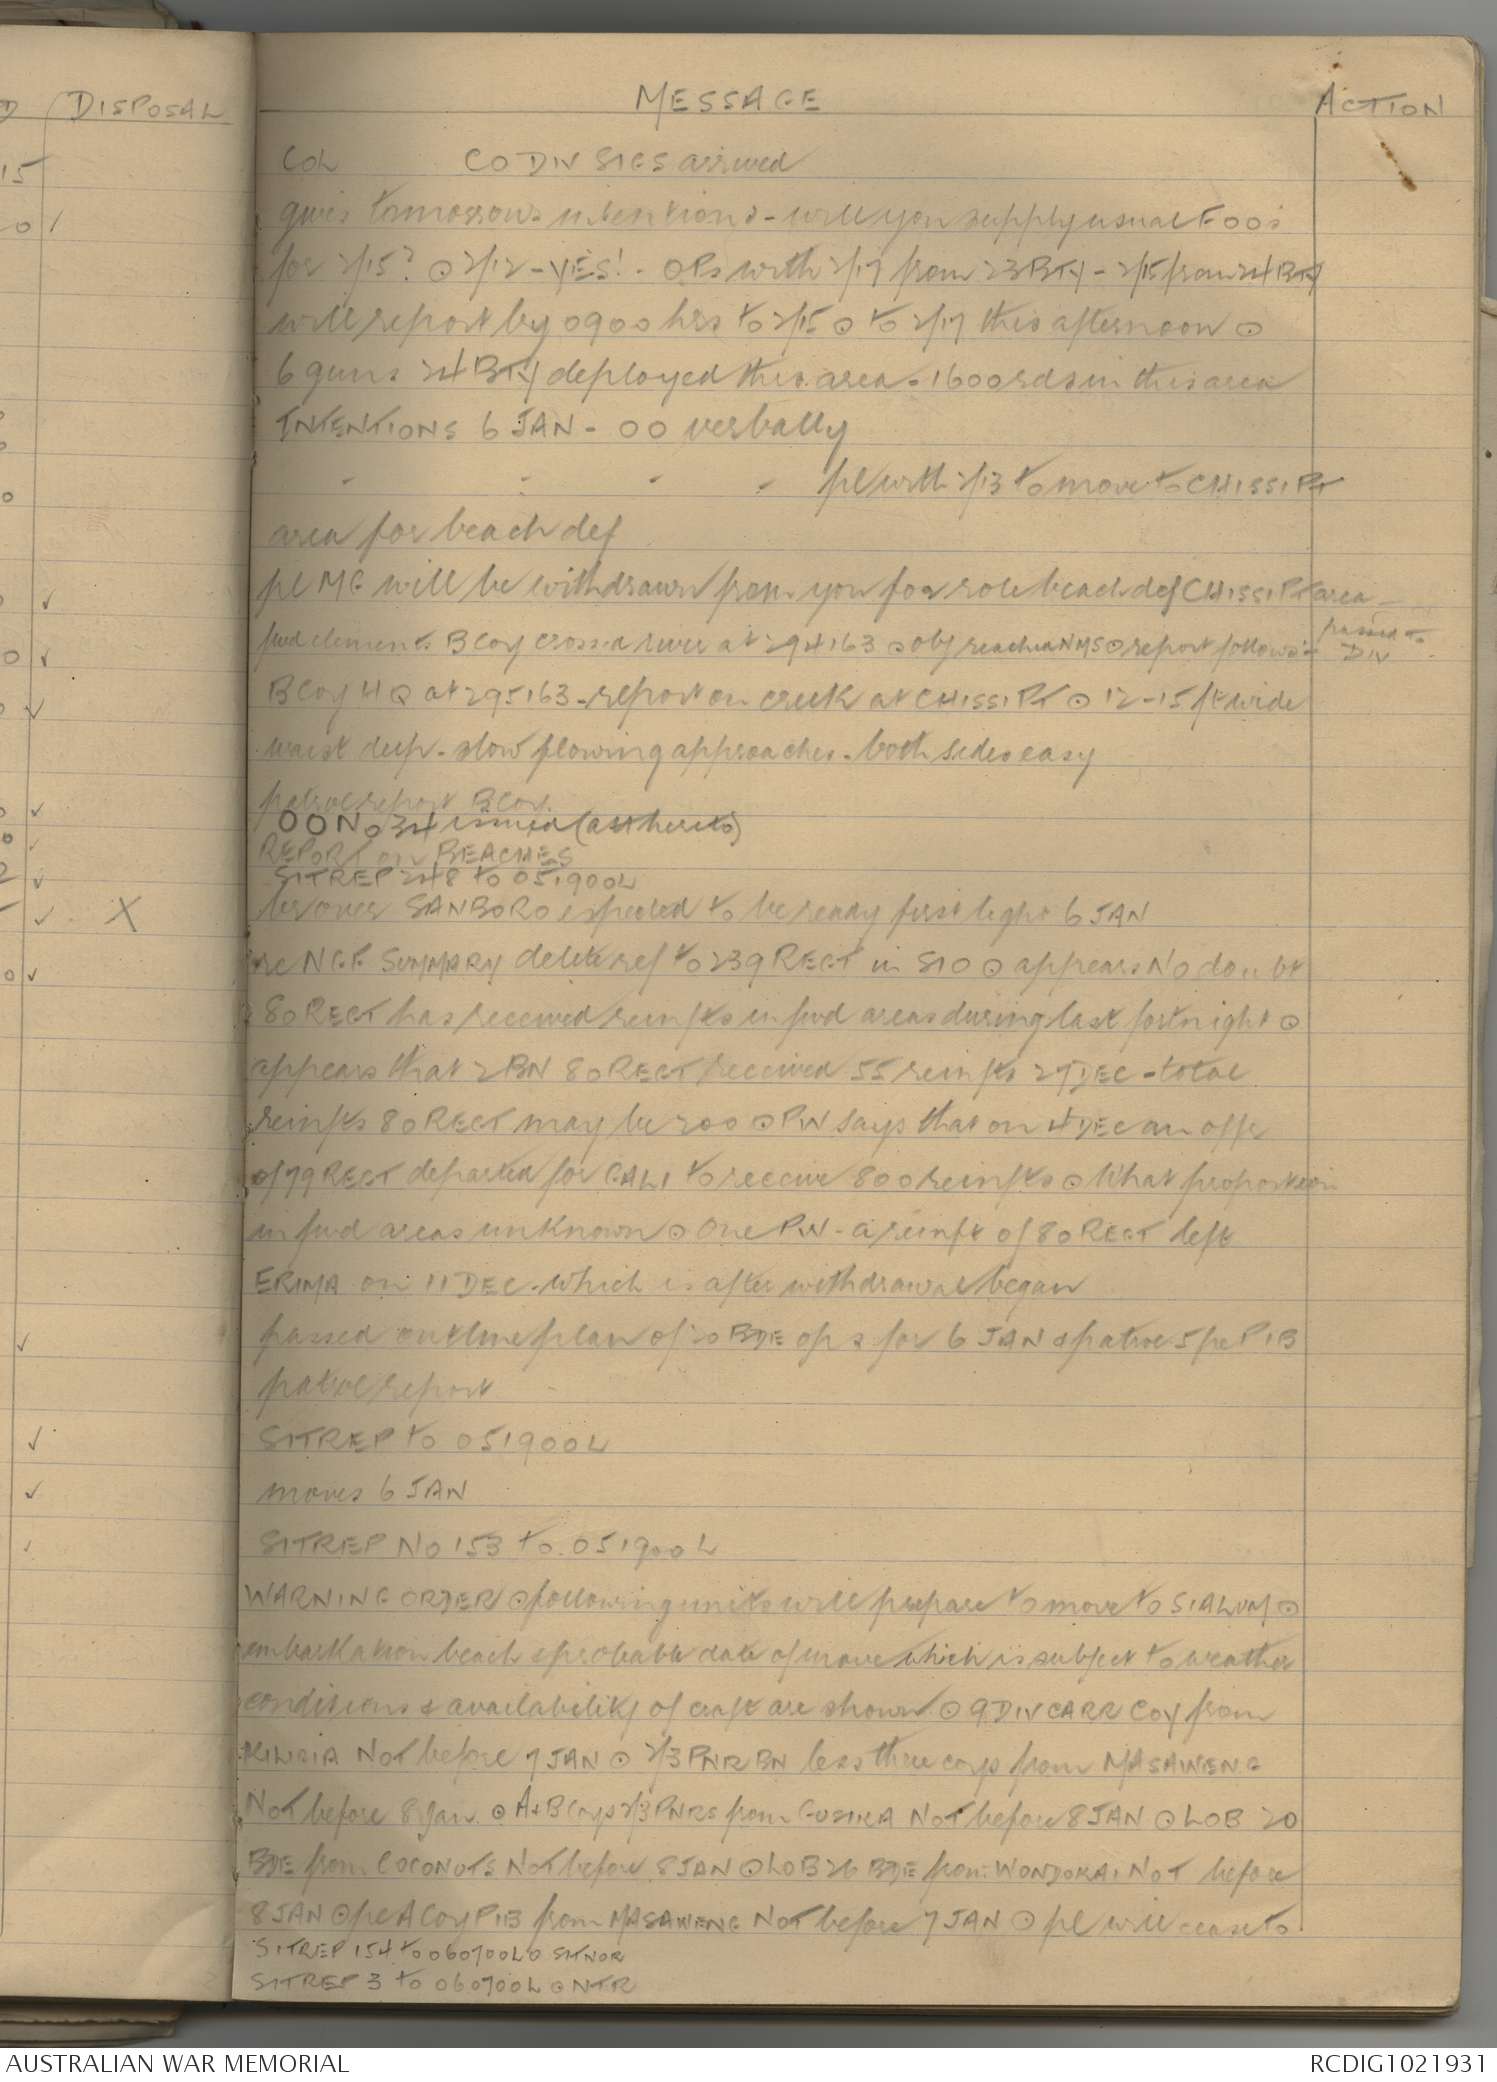 DISPOSAL
MESSAGE
ACTION
COL CO DIV SIGS arrived
gives tomorrows intentions - will you supply usual FOO's
for 2/15? ⊙ 2/12 - YES! - OPs with 2/17 from 23 BTY - 2/15 from 24 BTY
will report by 0900 hrs to 2/15 ⊙ to 2/17 this afternoon ⊙
6 guns 24 BTY deployed this area - 1600 rds in this area
INTENTIONS 6 JAN - OO verbally
" " " " pl with 2/13 to move to CHISSI PT
area for beach def
pl MG will be withdrawn from you for role beach def CHISSI PT area
fwd elements B Coy crossed river at 294163 ⊙ obj reached NMS ⊙ report follows
passed to
DIV
B Coy HQ at 295163 - report on creek at CHISSI PT ⊙ 12-15 ft wide
waist deep - slow flowing approaches - both sides easy
patrol report B Coy
OO No 34 issued (att hereto)
REPORT on BEACHES
SITREP 248 to 051900L
X
over SANBORO expected to be ready first light 6 JAN
re NGF SUMMARY delete ref to 239 REGT in SIO ⊙ appears No doubt
80 REGT has received reinfts in fwd areas during last fortnight ⊙
appears that 2 BN 80 REGT received 55 reinfts 27 DEC - total
reinfts 80 REGT may be 200 ⊙ PW says that on 4 DEC an offr
of 79 REGT departed for GALI to receive 800 reinfts ⊙ What proportion
in fwd areas unknown ⊙ One PW - a reinft of 80 REGT left
ERIMA on 11 DEC - which is after withdrawal began
passed outline plan of 20 BDE ops for 6 JAN & patrol 5 pl PIB
patrol report
SITREP to 051900L
moves 6 JAN
SITREP No 153 to 051900L
WARNING ORDER ⊙ following units will prepare to move to SIALUM ⊙
embarkation beach & probable date of move which is subject to weather
conditions & availability of craft are shown ⊙ 9 DIV CARR COY from
KILIGIA NOT before 7 JAN ⊙ 2/3 PNR BN less three coys from MASAWENG
NOT before 8 Jan ⊙ A & B Coys 2/3 PNRS from GUSIKA NOT before 8 JAN ⊙ LOB 20
BDE from COCONUTS NOT before 8 JAN ⊙ LOB 26 BDE from WONDOKAI NOT before
8 JAN ⊙ pl A Coy PIB from MASAWENG NOT before 7 JAN ⊙ pl will cease to
SITREP 154 to 060700L ⊙ SITNOR
SITREP 3 to 060700L ⊙ NTR
AUSTRALIAN WAR MEMORIAL
RCDIG1021931